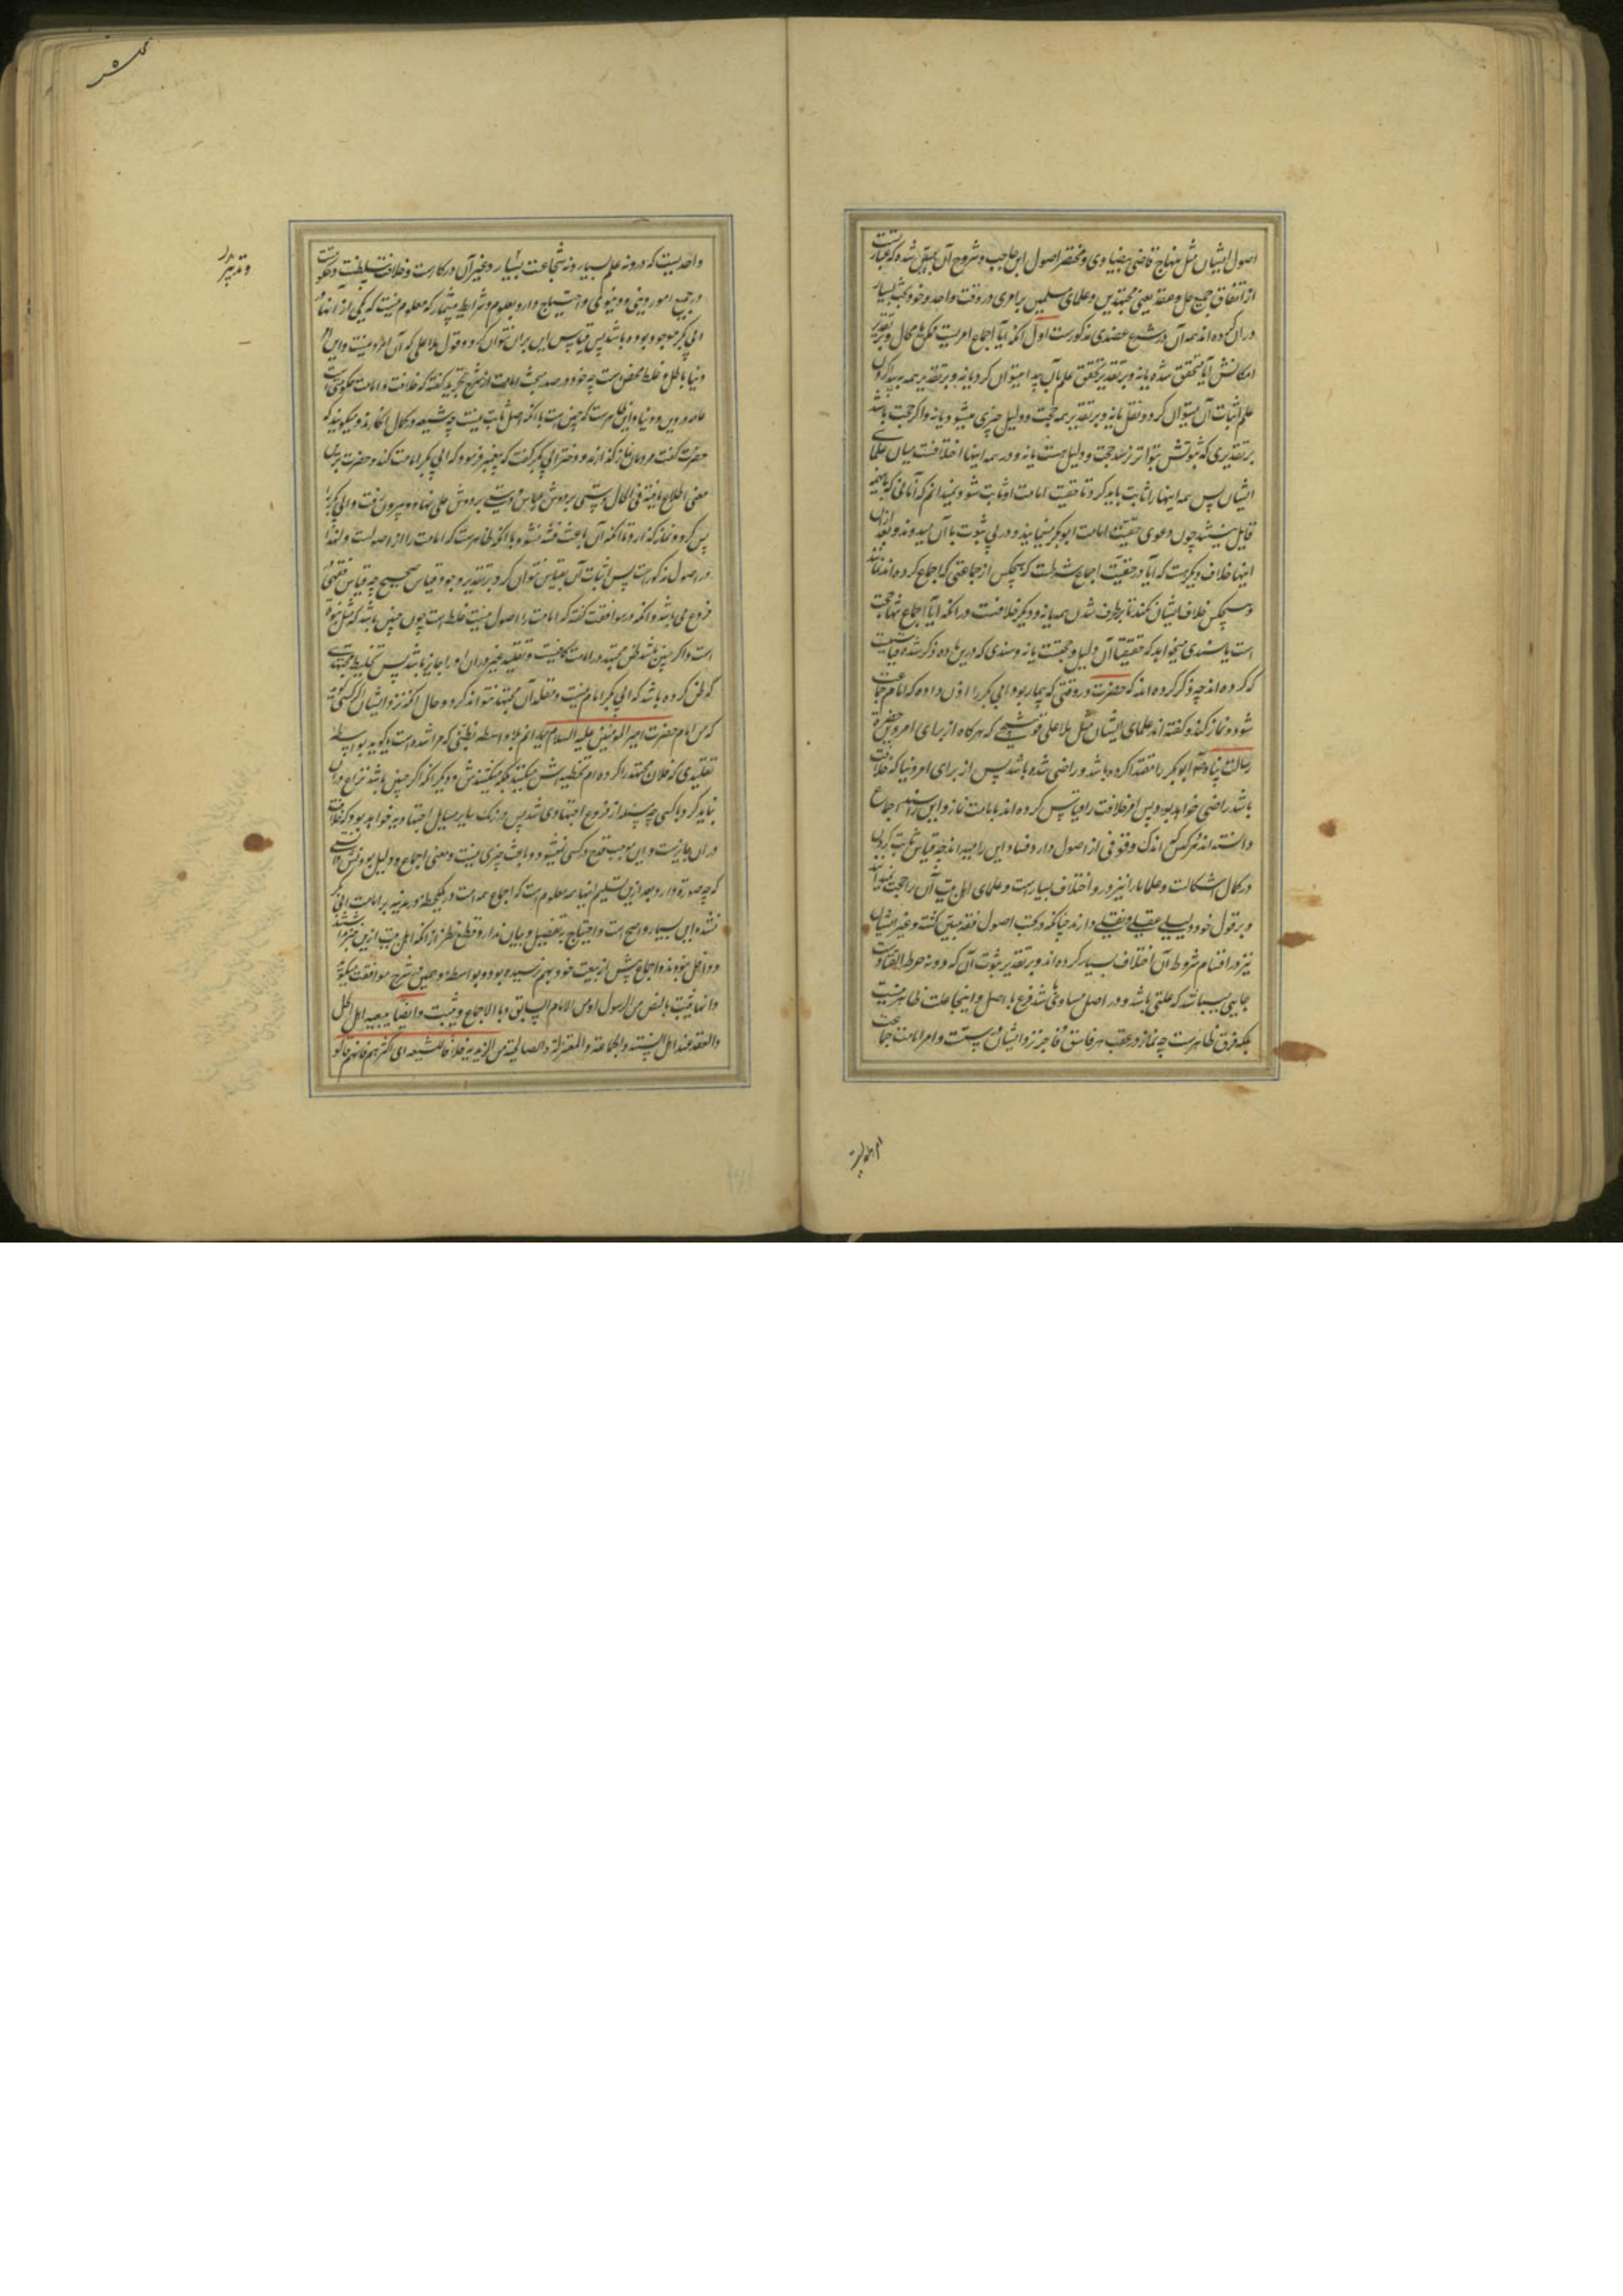 اصول ایشان مثل منهاج قاضی بیضاوی و مختصر اصول ابن حاجب و شروح آن محقق شده که عبارتست
از اتفاق جمیع حل و عقد یعنی مجتهدین و علمای مسلمین بر امری در وقت واحد و خود بحث بسیار
در ان کرده اند همه آن در شرح عضدی مذکورست اول آنکه آیا اجماع امریست ممکن یا محال و بر تقدیر
امکانش آیا متحقق شده یا نه و بر تقدیر تحقق علم بآن پیدا میتوان کرد یا نه و بر تقدیر همه پیدا کردن
علم اثبات آن میتوان کرد و نقل یا نه و بر تقدیر همه حجت و دلیل چیزی میشود یا نه و اگر حجت باشد
بر تقدیری که ثبوتش بتواتر نرسد حجت و دلیل هست یا نه و در همه اینها اختلافست میان علمای
ایشان پس همه اینها را ثابت باید کرد تا حقیت امامت او ثابت شود و نمیدانم که آنانی که باینها
قایل نیستند چون دعوی حقیت امامت ابوبکر مینمایند و در پی ثبوت با آن میروند و بعد ازان
اینها خلاف دیگر هست که آیا در حقیت اجماع شرطست که هیچکس از جماعتی که اجماع کرده اند نماند
و هیچکس خلاف ایشان نکند تا برطرف شدن همه یا نه و دیگر خلافست در آنکه آیا اجماع تنها حجت
است یا سندی میخواهد که حقیقتا آن دلیل و حجت یا نه و سندی که درین ماده ذکر شده قیاسیست
که کرده اند چه ذکر کرده اند که حضرت در وقتی که بیمار بود ابی بکر را اذن داده که امام جماعت
شود و نماز کند و گفته اند علمای ایشان مثل ملا علی قوشچی که هرگاه از برای امر دین حضرت
رسالت پناه ابوبکر را مقتدا کرده باشد و راضی شده باشد پس از برای امر دنیا که خلافت
باشد راضی خواهد بود پس امر خلافت را قیاس کرده اند بامامت نماز و این را سند اجماع
دانسته اند هر کس اندک وقوفی از اصول دارد فساد این را میداند چه قیاس ثابت کردن
در کمال اشکالست و علما را نیز در و اختلاف بسیار است و علمای اهل بیت آن را حجت نمیدانند
و بر قول خود دلیلی عقلی و نقلی دارند چنانکه در کتب اصول فقه مبین گشته و غیر ایشان
نیز در اقسام شروط آن اختلاف بسیار کرده اند و بر تقدیر ثبوت آن که دونه خرط القتاد است
جایی میباشد که علتی باشد و در اصل مساوی باشد فرع با اصل و اینجا علت ظاهر نیست
بلکه فرق ظاهرست چه نماز در عقب هر فاسق و فاجر نزد ایشان درستست و امر امامت جماعت
امر واحدیست
واحدیست که درو نه علم بسیار و نه شجاعت بسیار و غیر آن در کارست و خلافت سلطنت و حکومت
و تدبیر
در جمیع امور دینی و دنیوی و احتیاج دارد بعلوم و شرایط بیشمار که معلوم نیست که یکی از آنها در
ابی بکر موجود بوده باشد پس قیاس این بران نتوان کرد و قول ملا علی که آن امر دینست و این امر
دنیا باطل و غلط محض است چه خود در صدر بحث امامت از شرح تجرید گفته که خلافت و امامت حکومتی است
عامه در دین و دنیا و این ظاهرست که چنین است با آنکه اصل ثابت نیست چه شیعه در کمال انکارند و میگویند که
حضرت گفت مردمان نماز گذارند و دختر ابی بکر گفت که پیغمبر فرمود که ابی بکر امامت کند و حضرت برین
معنی اطلاع یافته فی الحال دستی بر دوش عباس و دستی بر دوش علی نهاده بیرون رفت و ابی بکر را
پس کرد و نماز گذارد تا آنکه آن باعث فتنه نشود با آنکه ظاهرست که امامت را از اصولست و لهذا
در اصول مذکورست پس اثبات آن بقیاس نتوان کرد بر تقدیر وجود قیاس صحیح چه قیاس فقهی در
فروع می باشد و آنکه در مواقف گفته که امامت از اصول نیست غلط است چون چنین باشد که مثل نبوة
است و اگر چنین باشد ظن مجتهد در امامت کافیست و تقلید غیر در ان او را جایز باشد پس تخلیط مجتهدی
که ظن کرده باشد که ابی بکر امام نیست و مقلد آن مجتهد نتواند کرد و حال آنکه نزد ایشان اگر کسی گوید
که من امام حضرت امیر المومنین علیه السلام میدانم بلا واسطه بظنی که مرا شده است یا گوید بواسطه
تقلیدی که فلان مجتهد را کرده ام تخطیه اش میکنند بلکه میکشندش و دیگر آنکه اگر چنین باشد نزاع دران
نباید کرد با کسی چه مسئله از فروع اجتهادی شد پس در رنگ سایر مسایل اجتهادیه خواهد بود که خلاف
دران جایزست و این موجب قدح در کسی نمیشود و باعث چیزی نیست و معنی اجماع و دلیل بودنش دانستی
که چه صورت دارد بعد ازین تسلیم اینها همه معلوم است که اجماع همه امت در یکلحظه در مدینه بر امامت ابی بکر
نشده این بسیار واضح است و احتیاج بتفصیل و بیان ندارد و قطع نظر از آنکه اهل بیت ازین خبر نداشتند
و داخل نبودند و اجماع پیش از بیعت خود بهم نرسیده بود و بواسطه همین شرح مواقف میگوید
و انها تثبت بالنص من الرسول او من الامام السابق و بالاجماع و تثبت و ایضا ببیعه اهل الحل
و العقد عند اهل السنة و الجماعة و المعتزلة و الصالحیة من الزیدیة خلافا للشیعه ای اکثرهم فانهم قالوا